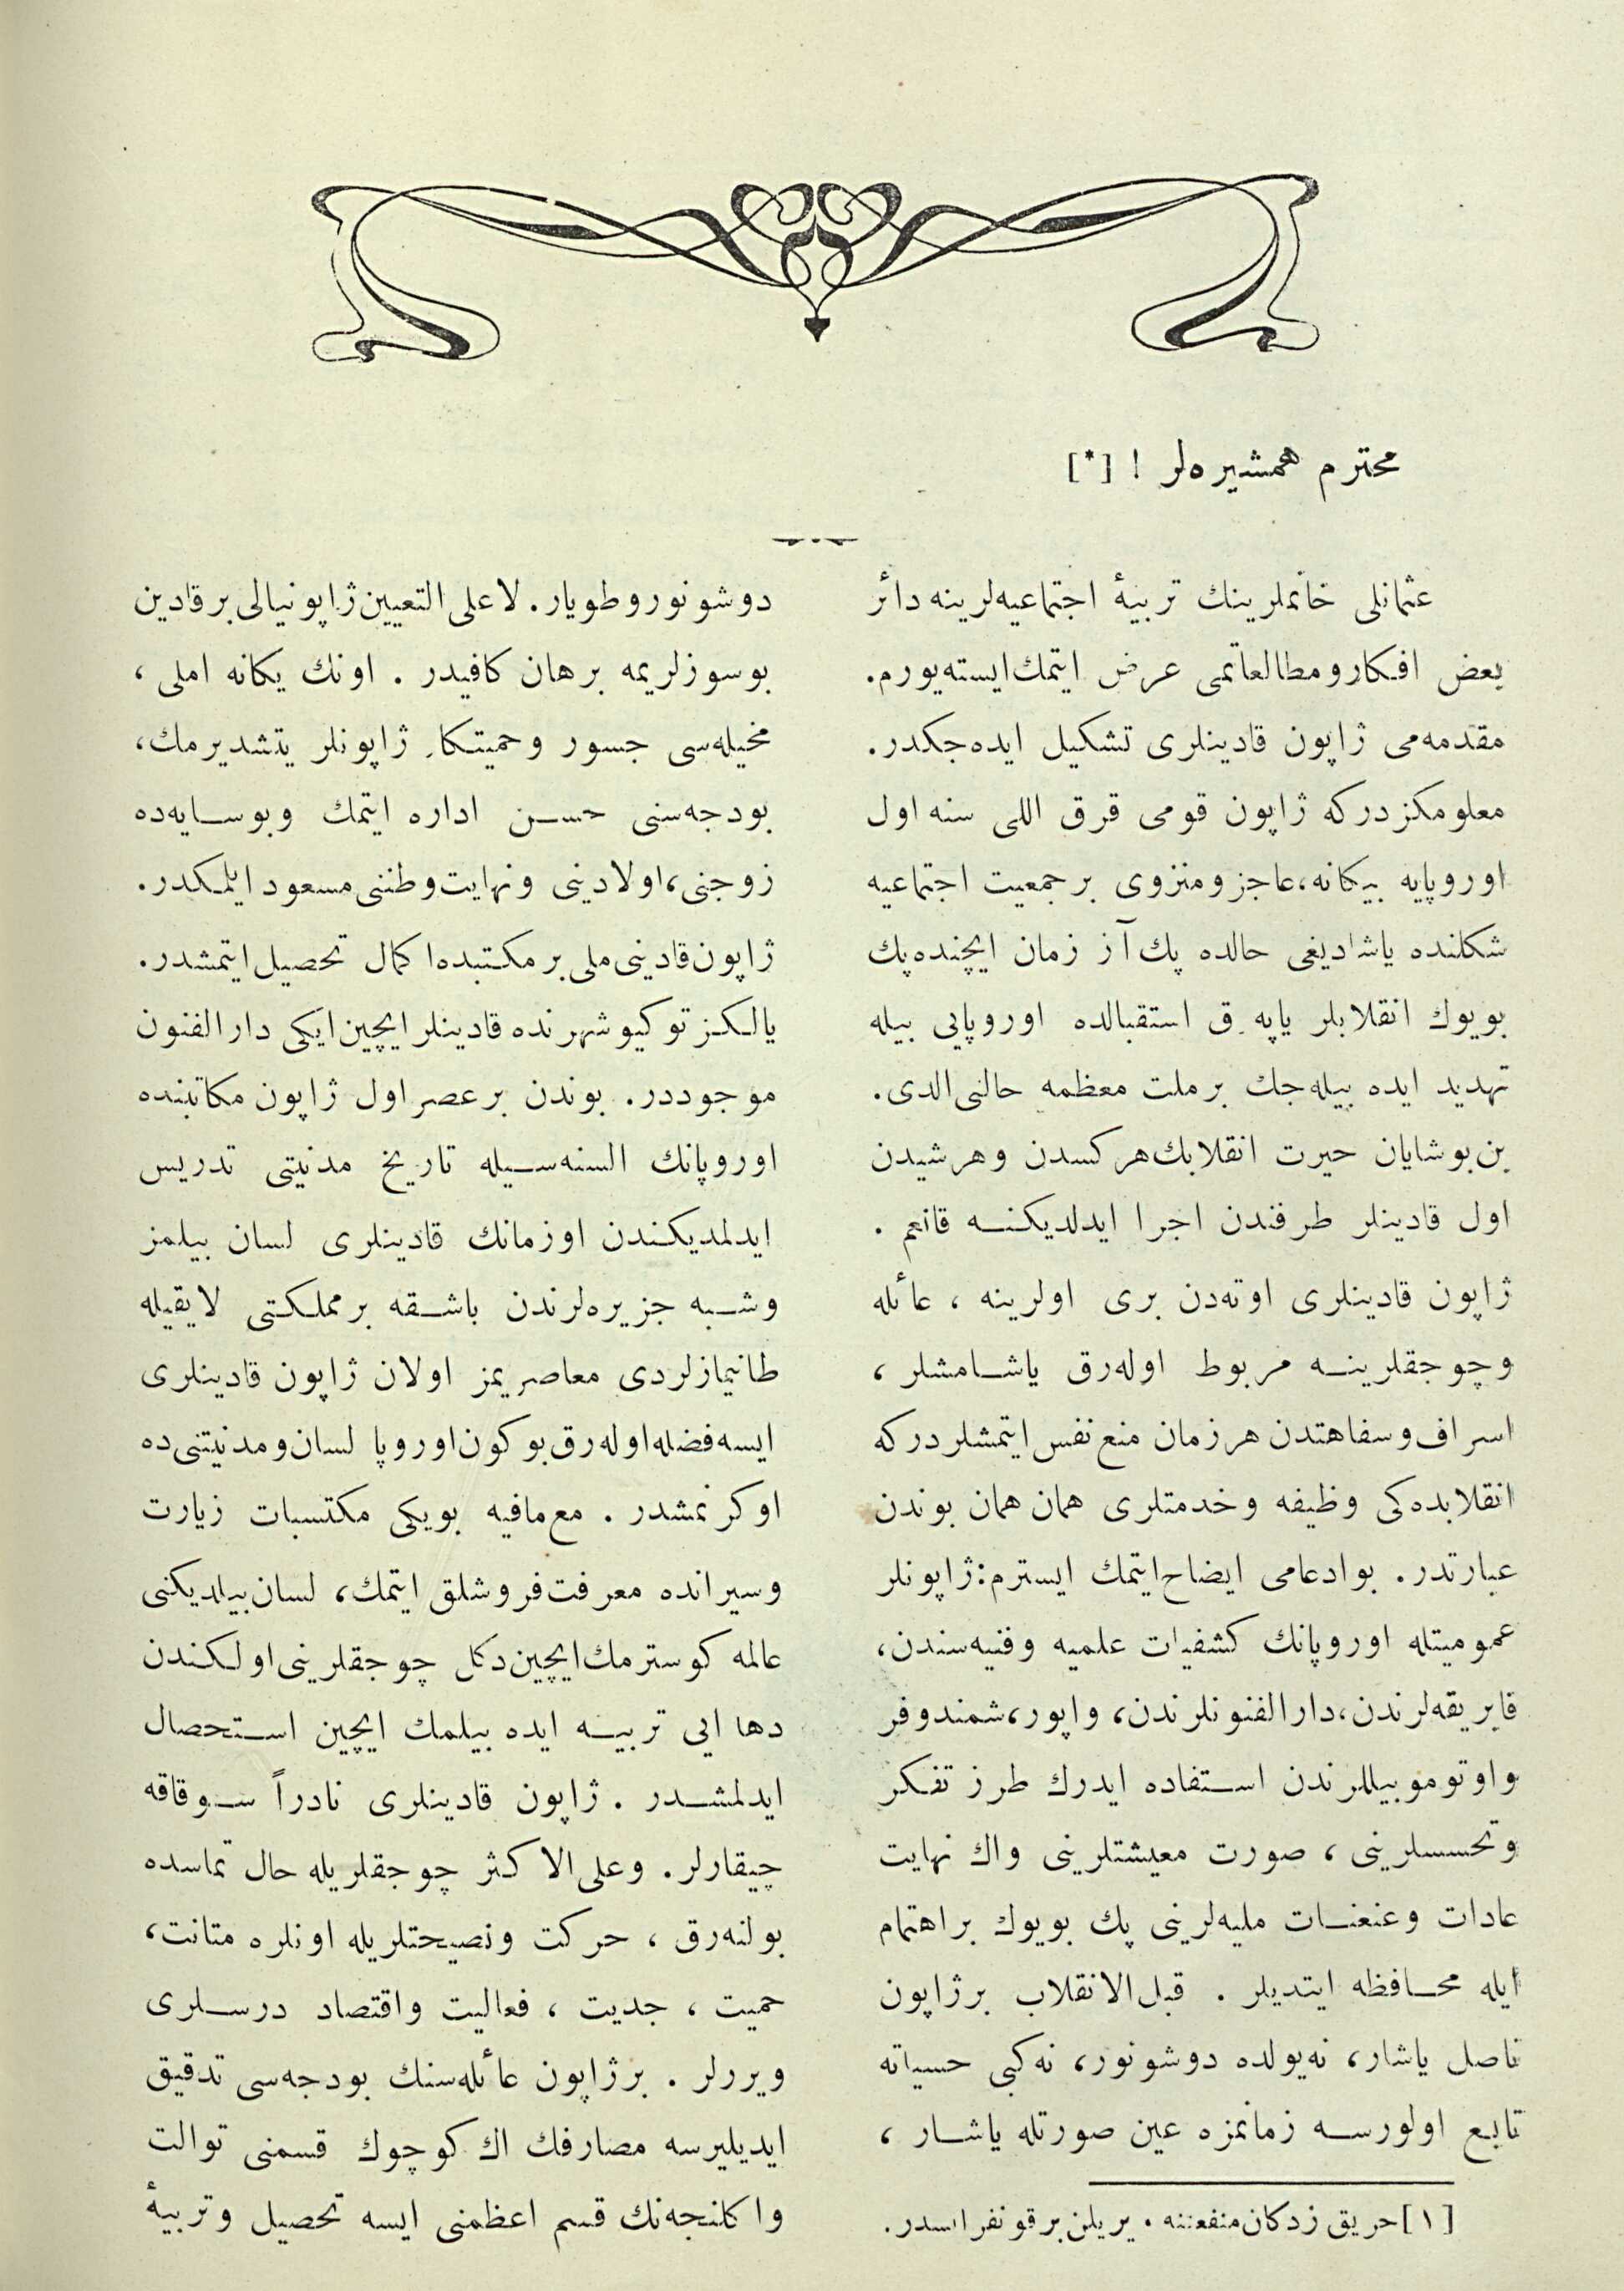 محترم همشیره‌لر ! [*]
عثمانلی خانملرینك تربیهٔ اجتماعیه‌لرینه دائر
بعض افكار و مطالعاتمی عرض ایتمك ایسته‌یورم.
مقدمه‌می ژاپون قادینلری تشكیل ایده‌جكدر.
معلومكزدركه ژاپون قومی قرق اللی سنه اول
اوروپایه بیكانه، عاجز و منزوی بر جمعیت اجتماعیه
شكلنده یاشادیغی حالده پك آز زمان ایچنده پك
بویوك انقلابلر یاپه‌رق استقبالده اوروپایی بیله
تهدید ایده بیله‌جك بر ملت معظمه حالنی الدی.
بن بو شایان حیرت انقلابك هركسدن و هرشیدن
اول قادینلر طرفندن اجرا ایدلدیكنه قانعم .
ژاپون قادینلری اوته‌دن بری اولرینه ، عائله
و چوجقلرینه مربوط اوله‌رق یاشامشلر ،
اسراف و سفاهتدن هر زمان منع نفس ایتمشلردركه
انقلابده‌كی وظیفه و خدمتلری همان همان بوندن
عبارتدر. بو ادعامی ایضاح ایتمك ایسترم: ژاپونلر
عمومیتله اوروپانك كشفیات علمیه و فنیه‌سندن،
فابریقه‌لرندن، دارالفنونلرندن، واپور، شمندوفر
و اوتوموبیللرندن استفاده ایدرك طرز تفكر
و تحسسلرینی ، صورت معیشتلرینی و اك نهایت
عادات و عنعنات ملیه‌لرینی پك بویوك بر اهتمام
ایله محافظه ایتدیلر . قبل الانقلاب بر ژاپون
ناصل یاشار، نه یولده دوشونور، نه كبی حسیاته
تابع اولورسه زمانمزه عین صورتله یاشار ،
[١] حریق زدكان منفعتنه ویریلن بر قونفرانسدر.
دوشونور و طویار. لاعلی التعیین ژاپونیالی بر قادین
بو سوزلریمه برهان كافیدر . اونك یكانه املی ،
مخیله‌سی جسور و حمیتكار ژاپونلر یتشدیرمك،
بودجه‌سنی حسن اداره ایتمك و بو سایه‌ده
زوجنی، اولادینی و نهایت وطننی مسعود ایلمكدر.
ژاپون قادینی ملی بر مكتبده اكمال تحصیل ایتمشدر.
یالكز توكیو شهرنده قادینلر ایچین ایكی دارالفنون
موجوددر. بوندن بر عصر اول ژاپون مكاتبنده
اوروپانك السنه‌سیله تاریخ مدنیتی تدریس
ایدلمدیكندن او زمانك قادینلری لسان بیلمز
و شبه جزیره‌لرندن باشقه بر مملكتی لایقیله
طانیمازلردی معاصریمز اولان ژاپون قادینلری
ایسه فضله اوله‌رق بوكون اوروپا لسان و مدنیتنی ده
اوكرنمشدر . مع مافیه بو یكی مكتسبات زیارت
و سیرانده معرفت فروشلق ایتمك، لسان بیلدیكنی
عالمه كوسترمك ایچین دكل چوجقلرینی اولكندن
دها ایی تربیه ایده بیلمك ایچین استحصال
ایدلمشدر . ژاپون قادینلری نادراً سوقاقه
چیقارلر. و علی الاكثر چوجقلریله حال تماسده
بولنه‌رق ، حركت و نصیحتلریله اونلره متانت،
حمیت ، جدیت ، فعالیت و اقتصاد درسلری
ویررلر . بر ژاپون عائله‌سنك بودجه‌سی تدقیق
ایدیلیرسه مصارفك اك كوچوك قسمنی توالت
و اكلنجه‌نك قسم اعظمنی ایسه تحصیل و تربیهٔ